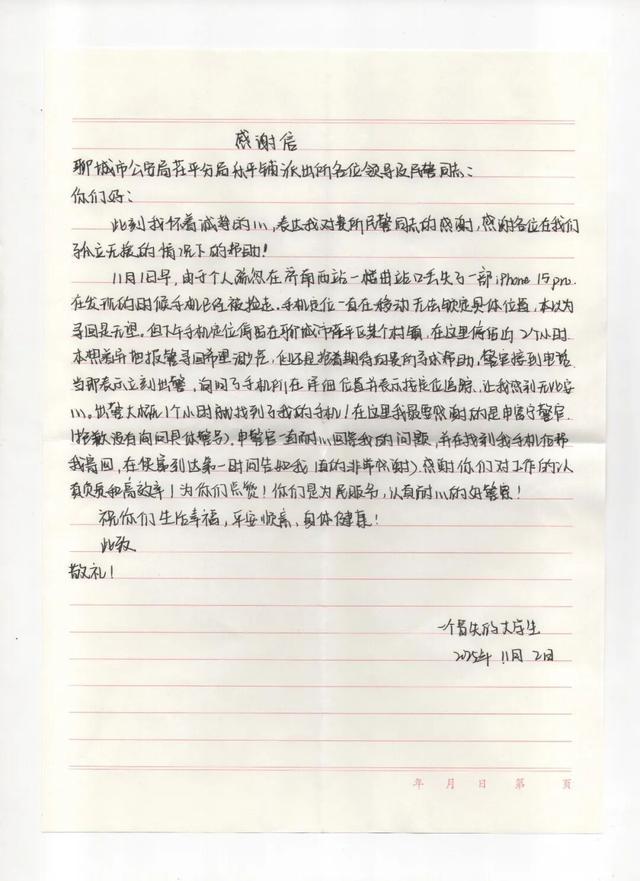 感谢信
聊城市公安局茌平分局乐平铺派出所各位领导及民警同志：
你们好：
此刻我怀着诚挚的心，表达我对贵所民警同志的感谢，感谢各位在我们
孤立无援的情况下的帮助！
11月1日早，由于个人疏忽在济南西站一楼出站口丢失了一部iPhone 15 pro.
在发现的时候手机已经被捡走.手机定位一直在移动无法锁定具体位置，本以为
寻回是无望.但下午手机定位停留在聊城市茌平区某个村镇，在这里停留近2个小时
本想着异地报警寻回希望渺茫，但还是抱着期待向贵所寻求帮助，警官接到电话
当即表示立刻出警，询问了手机所在详细位置并表示按定位追踪.让我感到无比安
心.出警大概1个小时就找到了我的手机！在这里我最要感谢的是申 警官
(抱歉没有询问具体警号).申警官一直耐心回答我的问题，并在找到我手机后帮
我寄回，在快客到达第一时间告知我(真的非常感谢).感谢你们对工作的认
真负责和高效率！为你们点赞！你们是为民服务，认真耐心的好警察！
祝你们生活幸福，平安顺意、身体健康！
此致
敬礼！
一个冒失的大学生
2025年 11月 2日
年 月 日 第 页